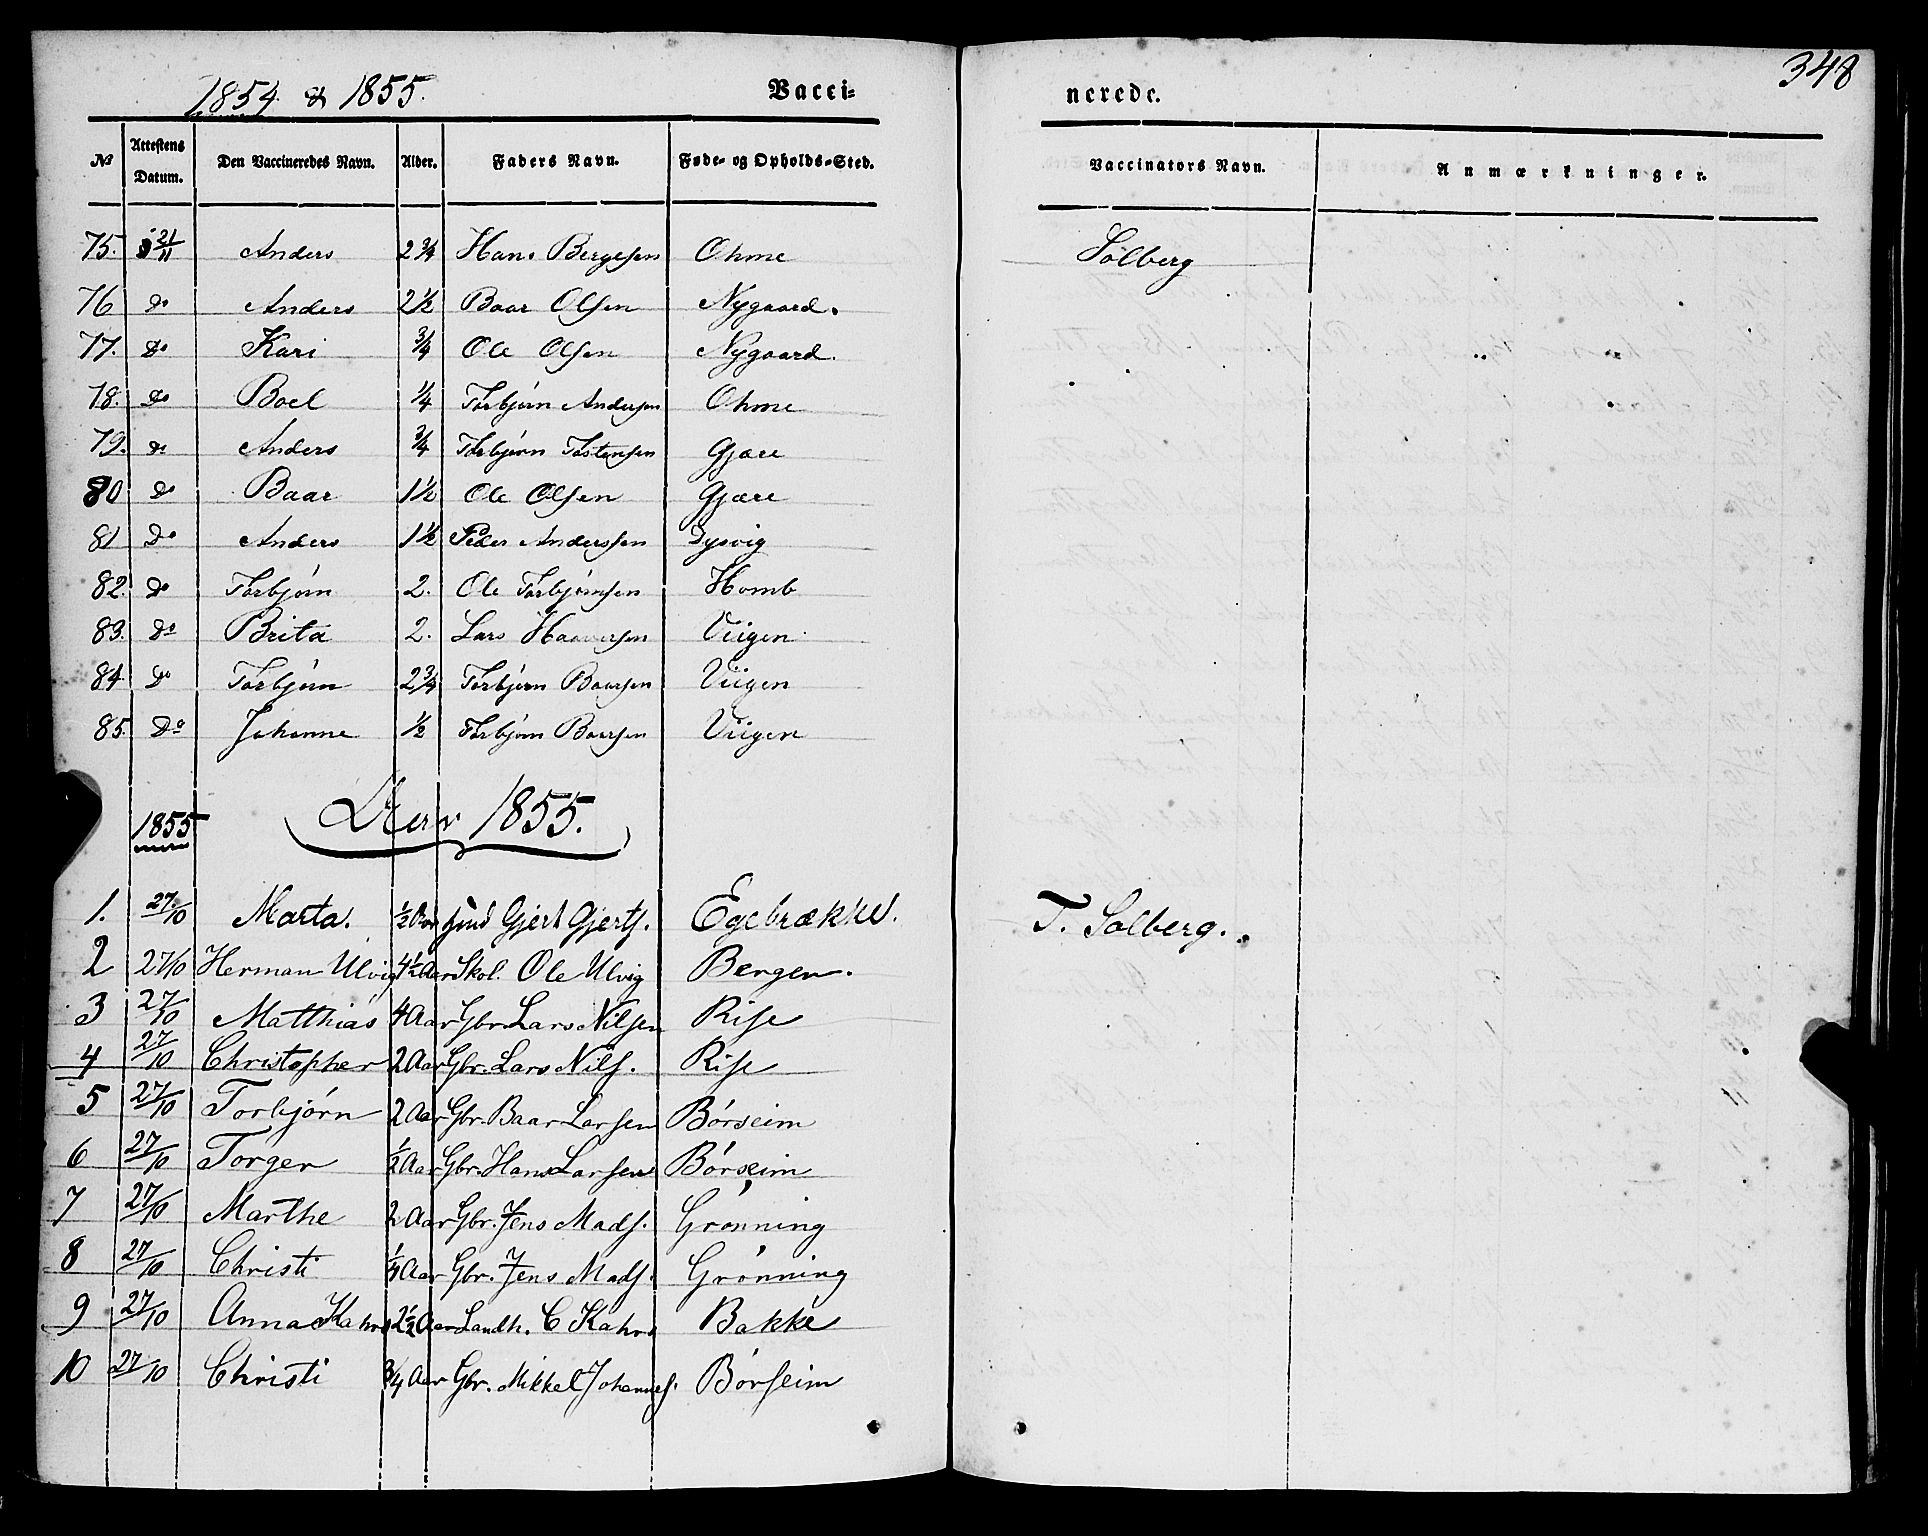 1854 & 1855. Vacci-
nerede. 348
№ Attestens Datum. Den Vaccineredes Navn. Alder. Faders Navn. Føde- og Opholds-Sted. Vaccinators Navn. Anmærkninger.
75. 21/11 Anders 2 3/4 Hans Bergesen Ohme Sólberg
76 do Anders 2 1/2 Baar Olsen Nygaard.
77. Do Kari 3/4 Ole Olsen Nygaard.
78. Do Boel 1/4 Torbjørn Andersen Ohme
79. do Anders 3/4 Torbjørn Tostensen Gjære
80 Do Baar 1 1/2 Ole Olsen Gjære
81 Do Anders 1 1/2 Peder Anderssen Dysvig
82. Do Torbjørn 2. Ole Torbjørnsen Homb
83. Do Brita 2. Lars Haaversen Viigen
84. Do Torbjørn 2 3/4 Torbjørn Baarsen Viigen
85. Do Johanne 1/2 Torbjørn Baarsen Viigen
1855 1855.
1. 27/10 Marta. 1/2 Aar Gjert Gjerts. Egebrække. T. Solberg.
2 27/10 Herman Ulvig 4 1/2 Aar Skol. Ole Ulvig Bergen.
3 27/10 Matthias 4 Aar Gbr. Lars Nilsen Rise
4 27/10 Christopher 2 Aar Gbr. Lars Nils. Rise
5 27/10 Torbjørn 2 Aar Gbr. Baar Larsen Børseim
6 27/10 Torger 1/2 Aar Gbr. Hans Larsen Børseim
7 27/10 Marthe 2 Aar Gbr. Jens Mads. Grønning
8 27/10 Christi 1/4 Aar Gbr. Jens Mads. Grønning
9 27/10 Anna Kahrs 2 1/2 Aar Landh. C Kahrs Bakke
10 27/10 Christi 3/4 Aar Gbr. Mikkel Johannes. Børseim